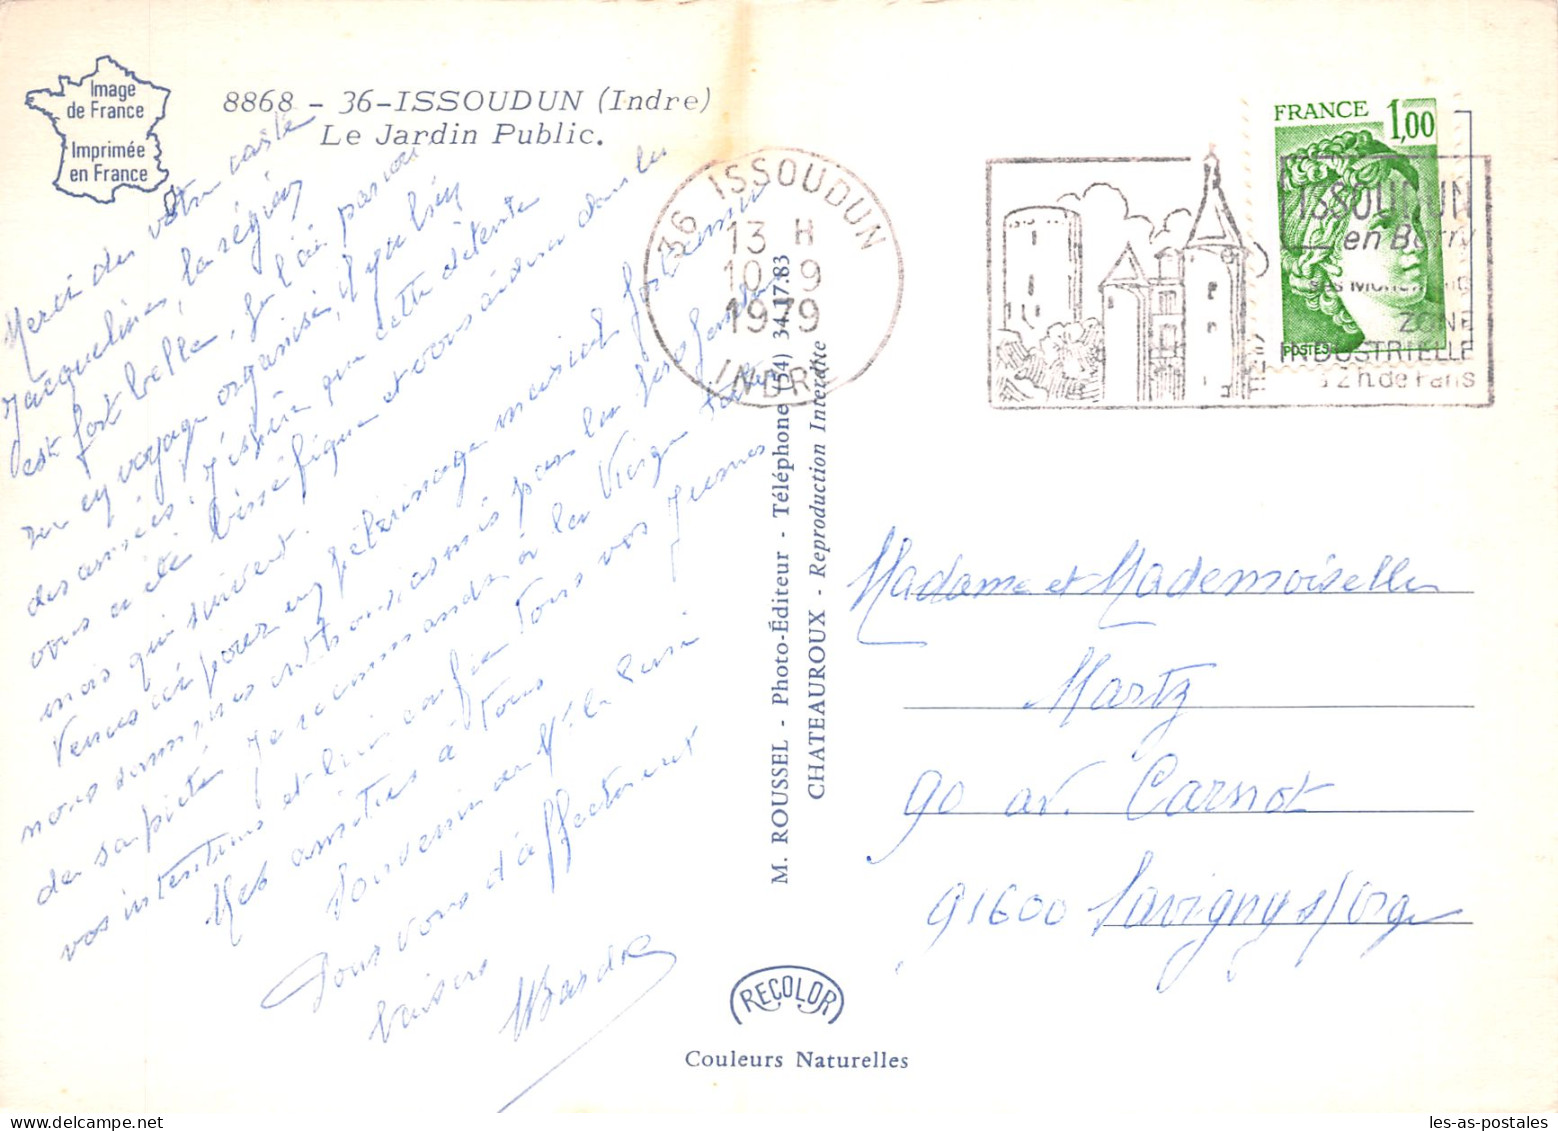 Image
de France
Imprimée
en France
8868 - 36-ISSOUDUN (Indre)
Le Jardin Public.
Merci de votre carte
Jacqueline, la région
est fort belle, je l'ai parcouru
en voyage organisé, il y a
des années. J'espère que cette détente
vous a été bénéfique et vous aidera dans les
mois qui suivent.
Venus ici pour un pèlerinage
nous sommes enthousiasmés par la
de sa piété. Je recommande à la Vierge toutes
vos intentions et lui confie tous vos jeunes
Mes amitiés à tous
Souvenir à Mr le Curé
Pour vous d'affectueux
baisers
36 ISSOUDUN
13 H
10 - 9
1979
INDRE
FRANCE
1,00
POSTES
ISSOUDUN
en Berry
ses Monuments
ZONE
INDUSTRIELLE
à 2 h. de Paris
M. ROUSSEL - Photo-Éditeur - Téléphone (54) 34.17.83
CHATEAUROUX - Reproduction Interdite
Madame et Mademoiselle
Martz
90 av. Carnot
91600 Savigny s/Orge
RECOLOR
Couleurs Naturelles
les-as-postales